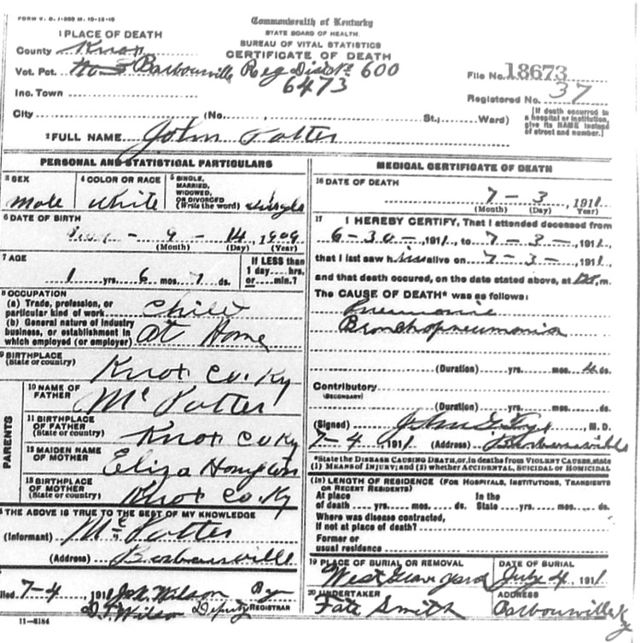 FORM V. S. 1-350 M. 10-12-10
Commonwealth of Kentucky
STATE BOARD OF HEALTH.
BUREAU OF VITAL STATISTICS
CERTIFICATE OF DEATH
1 PLACE OF DEATH
County Knox
Vot. Pct. Barbourville Reg Dist No 600
6473
File No. 18673
Inc. Town
Registered No. 37
City (No. St.; Ward)
[If death occurred in a hospital or institution, give its NAME instead of street and number.]
2 FULL NAME John Potter
PERSONAL AND STATISTICAL PARTICULARS
3 SEX
Male
4 COLOR OR RACE
White
5 SINGLE, MARRIED, WIDOWED, OR DIVORCED (Write the word) Single
6 DATE OF BIRTH
9 - 14, 1909
(Month) (Day) (Year)
7 AGE
1 yrs. 6 mos. 7 ds.
If LESS than 1 day hrs. or min.?
8 OCCUPATION
(a) Trade, profession, or particular kind of work Child
(b) General nature of industry business, or establishment in which employed (or employer) At Home
9 BIRTHPLACE
(State or country) Knox Co. Ky
PARENTS
10 NAME OF FATHER Mc Potter
11 BIRTHPLACE OF FATHER (State or country) Knox Co Ky
12 MAIDEN NAME OF MOTHER Eliza
13 BIRTHPLACE OF MOTHER (State or country) Knox Co. Ky
THE ABOVE IS TRUE TO THE BEST OF MY KNOWLEDGE
(Informant) Mc Potter
(Address) Barbourville
7-4 1911 Jas Wilson By
D.T. Wilson Deputy REGISTRAR
11-5184
MEDICAL CERTIFICATE OF DEATH
16 DATE OF DEATH
7 - 3, 1911
(Month) (Day) Year
17 I HEREBY CERTIFY, That I attended deceased from
6-30- 1911, to 7-3-, 1911,
that I last saw him alive on 7-3-, 1911,
and that death occured, on the date stated above, at m.
The CAUSE OF DEATH* was as follows:
Pneumonia
Bronchopneumonia
(Duration) yrs. mos. 4 ds.
Contributory
(SECONDARY)
(Duration) yrs. mos. ds.
(Signed) M. D.
7-4, 1911 (Address) Barbourville
*State the DISEASE CAUSING DEATH, or, in deaths from VIOLENT CAUSES, state
(1) MEANS OF INJURY; and (2) whether ACCIDENTAL, SUICIDAL or HOMICIDAL
LENGTH OF RESIDENCE (FOR HOSPITALS, INSTITUTIONS, TRANSIENTS OR RECENT RESIDENTS)
At place of death yrs. mos. ds. In the State yrs. mos. ds.
Where was disease contracted,
If not at place of death?
Former or
usual residence
19 PLACE OF BURIAL OR REMOVAL
West Grave yard
DATE OF BURIAL
July 4, 1911
20 UNDERTAKER
Fate Smith
ADDRESS
Barbourville Ky